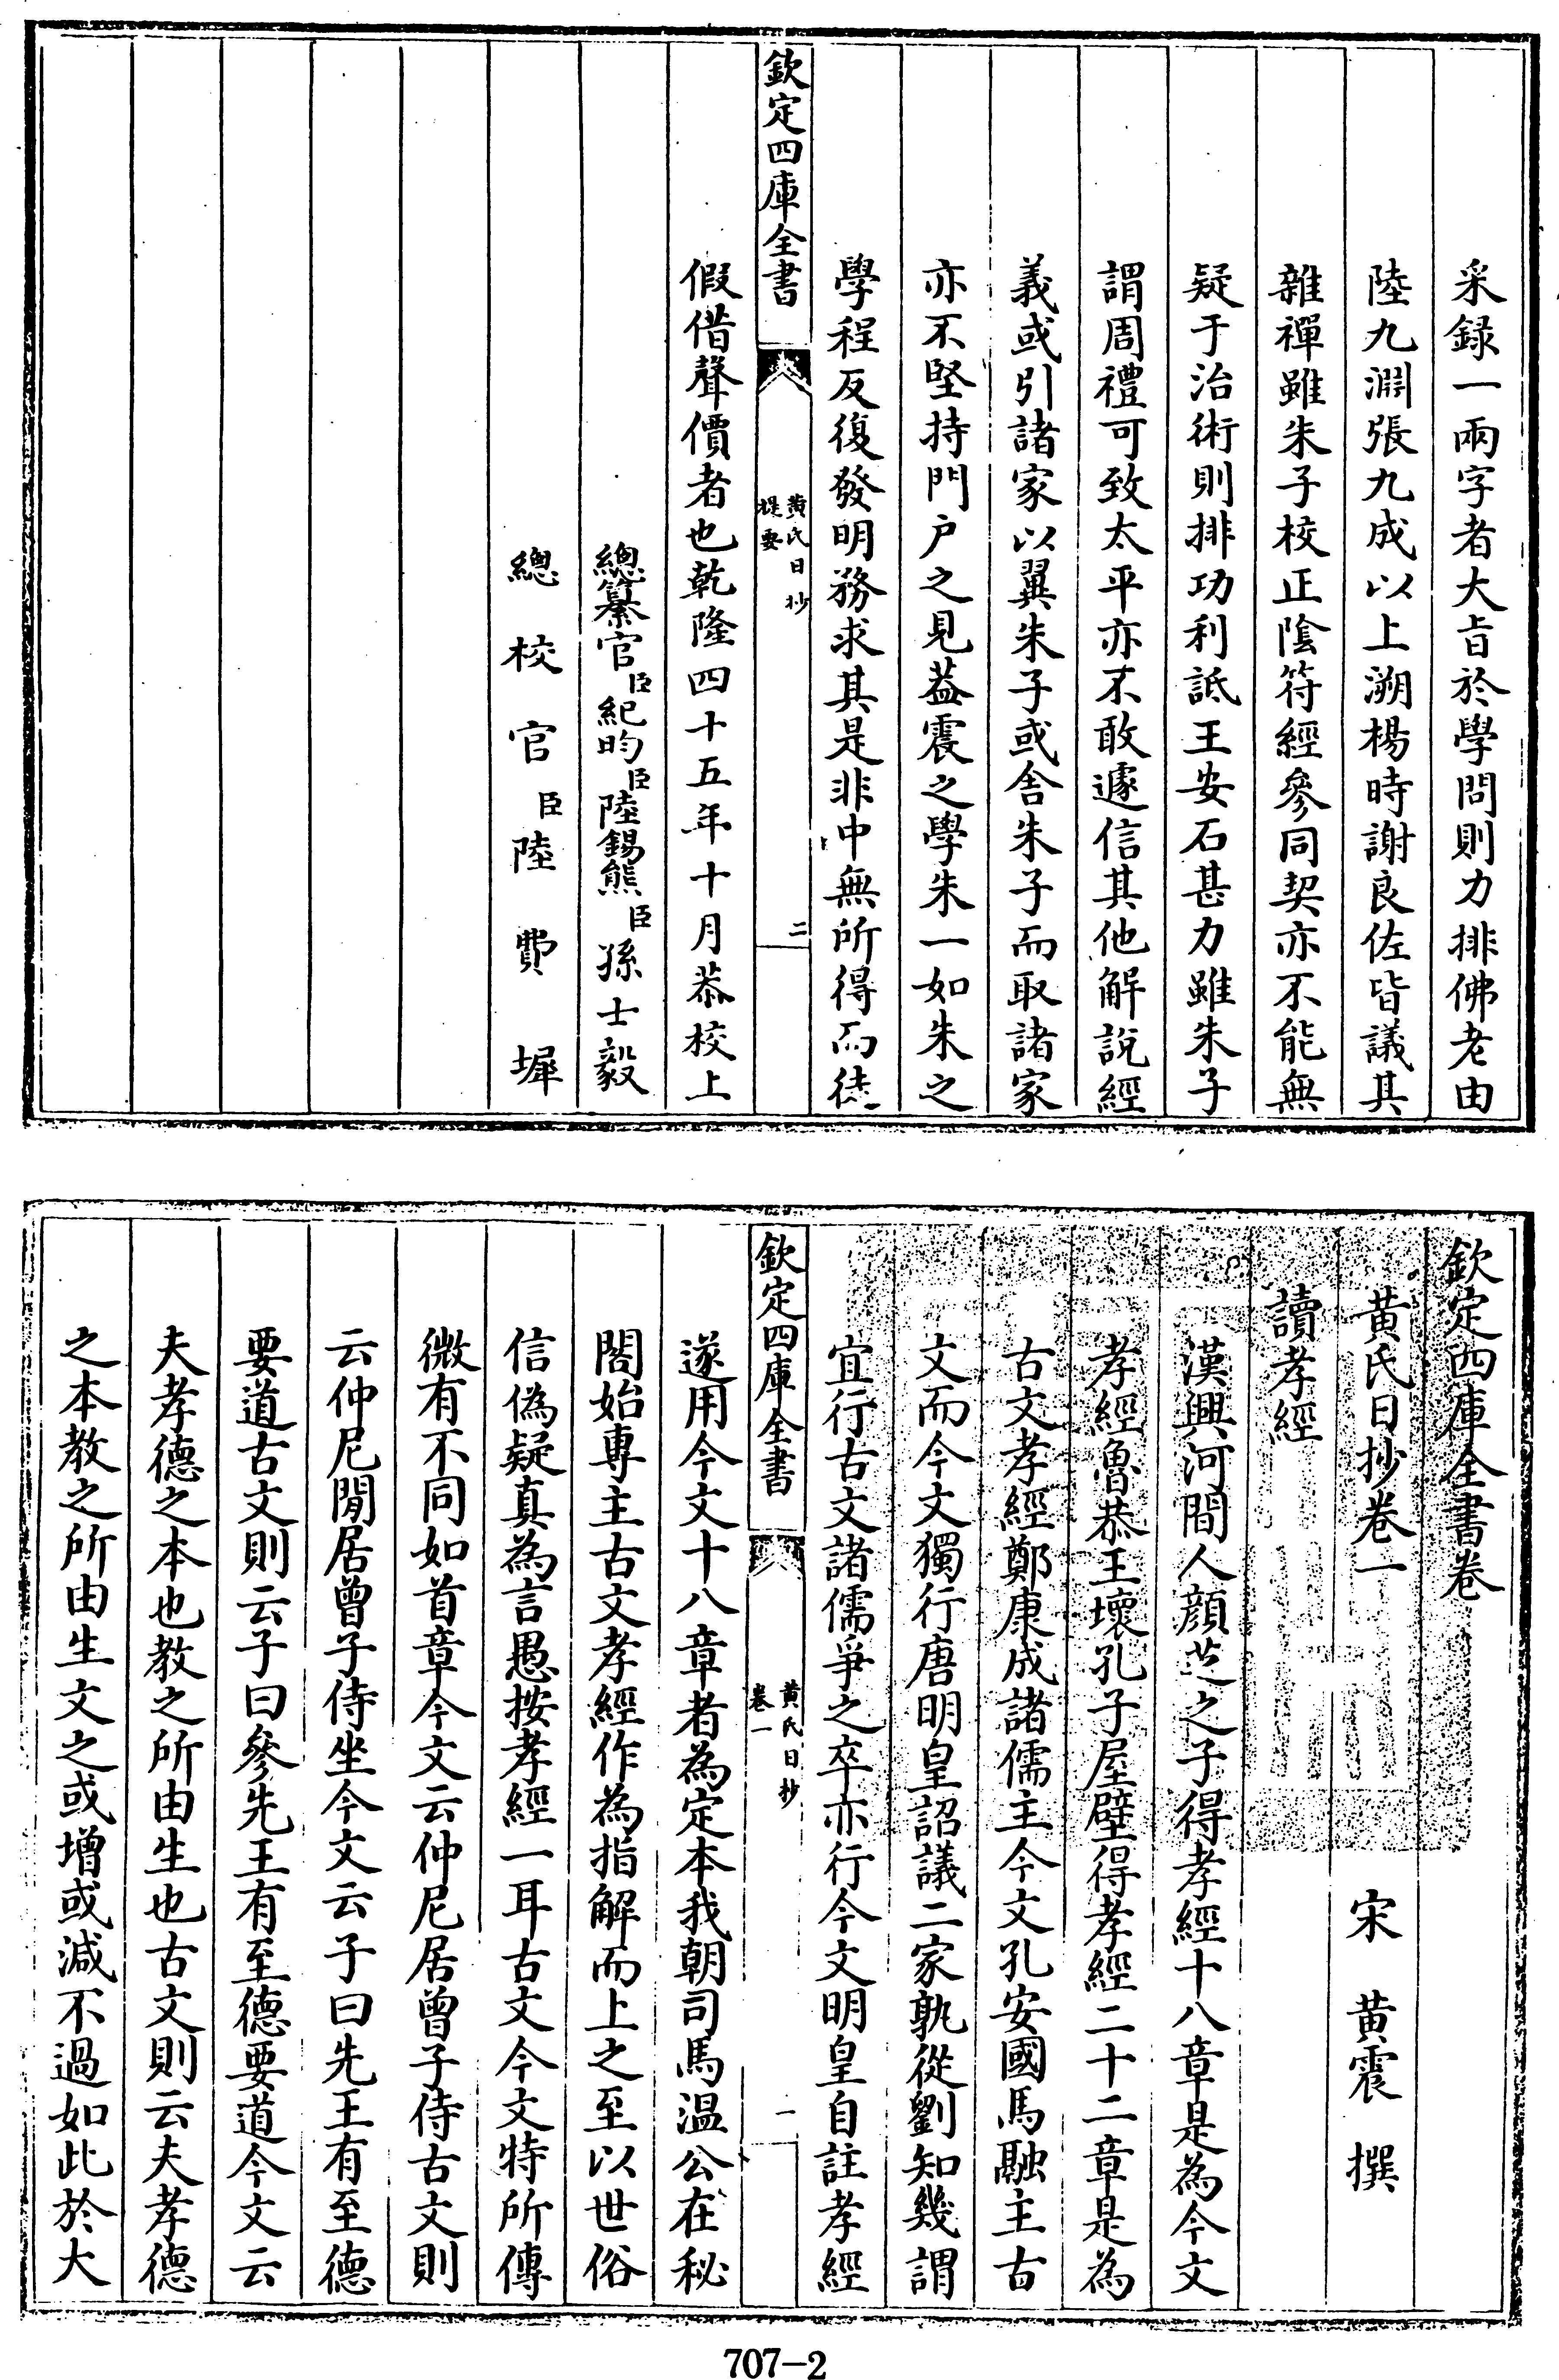 采録一兩字者大㫖於學問則力排佛老由
陸九淵張九成以上溯楊時謝良佐皆議其
雜禪雖朱子校正陰符經參同契亦不能無
疑于治術則排功利詆王安石甚力雖朱子
謂周禮可致太平亦不敢遽信其他解說經
義或引諸家以翼朱子或舍朱子而取諸家
亦不堅持門户之見葢震之學朱一如朱之
學程反復發明務求其是非中無所得而徒
欽定四庫全書
黄氏日抄
提要
二
假借聲價者也乾隆四十五年十月恭校上
總纂官臣紀昀臣陸錫熊臣孫士毅
總校官臣陸費墀
欽定四庫全書卷
黄氏日抄卷一
宋 黄震 撰
讀孝經
漢興河間人顔芝之子得孝經十八章是為今文
孝經魯恭王壞孔子屋壁得孝經二十二章是為
古文孝經鄭康成諸儒主今文孔安國馬融主古
文而今文獨行唐明皇詔議二家孰從劉知幾謂
宜行古文諸儒爭之卒亦行今文明皇自註孝經
欽定四庫全書
黄氏日抄
卷一
一
遂用今文十八章者為定本我朝司馬温公在秘
閣始專主古文孝經作為指解而上之至以世俗
信偽疑真為言愚按孝經一耳古文今文特所傳
微有不同如首章今文云仲尼居曾子侍古文則
云仲尼閒居曾子侍坐今文云子曰先王有至德
要道古文則云子曰參先王有至德要道今文云
夫孝德之本也教之所由生也古文則云夫孝德
之本教之所由生文之或增或減不過如此於大
707-2